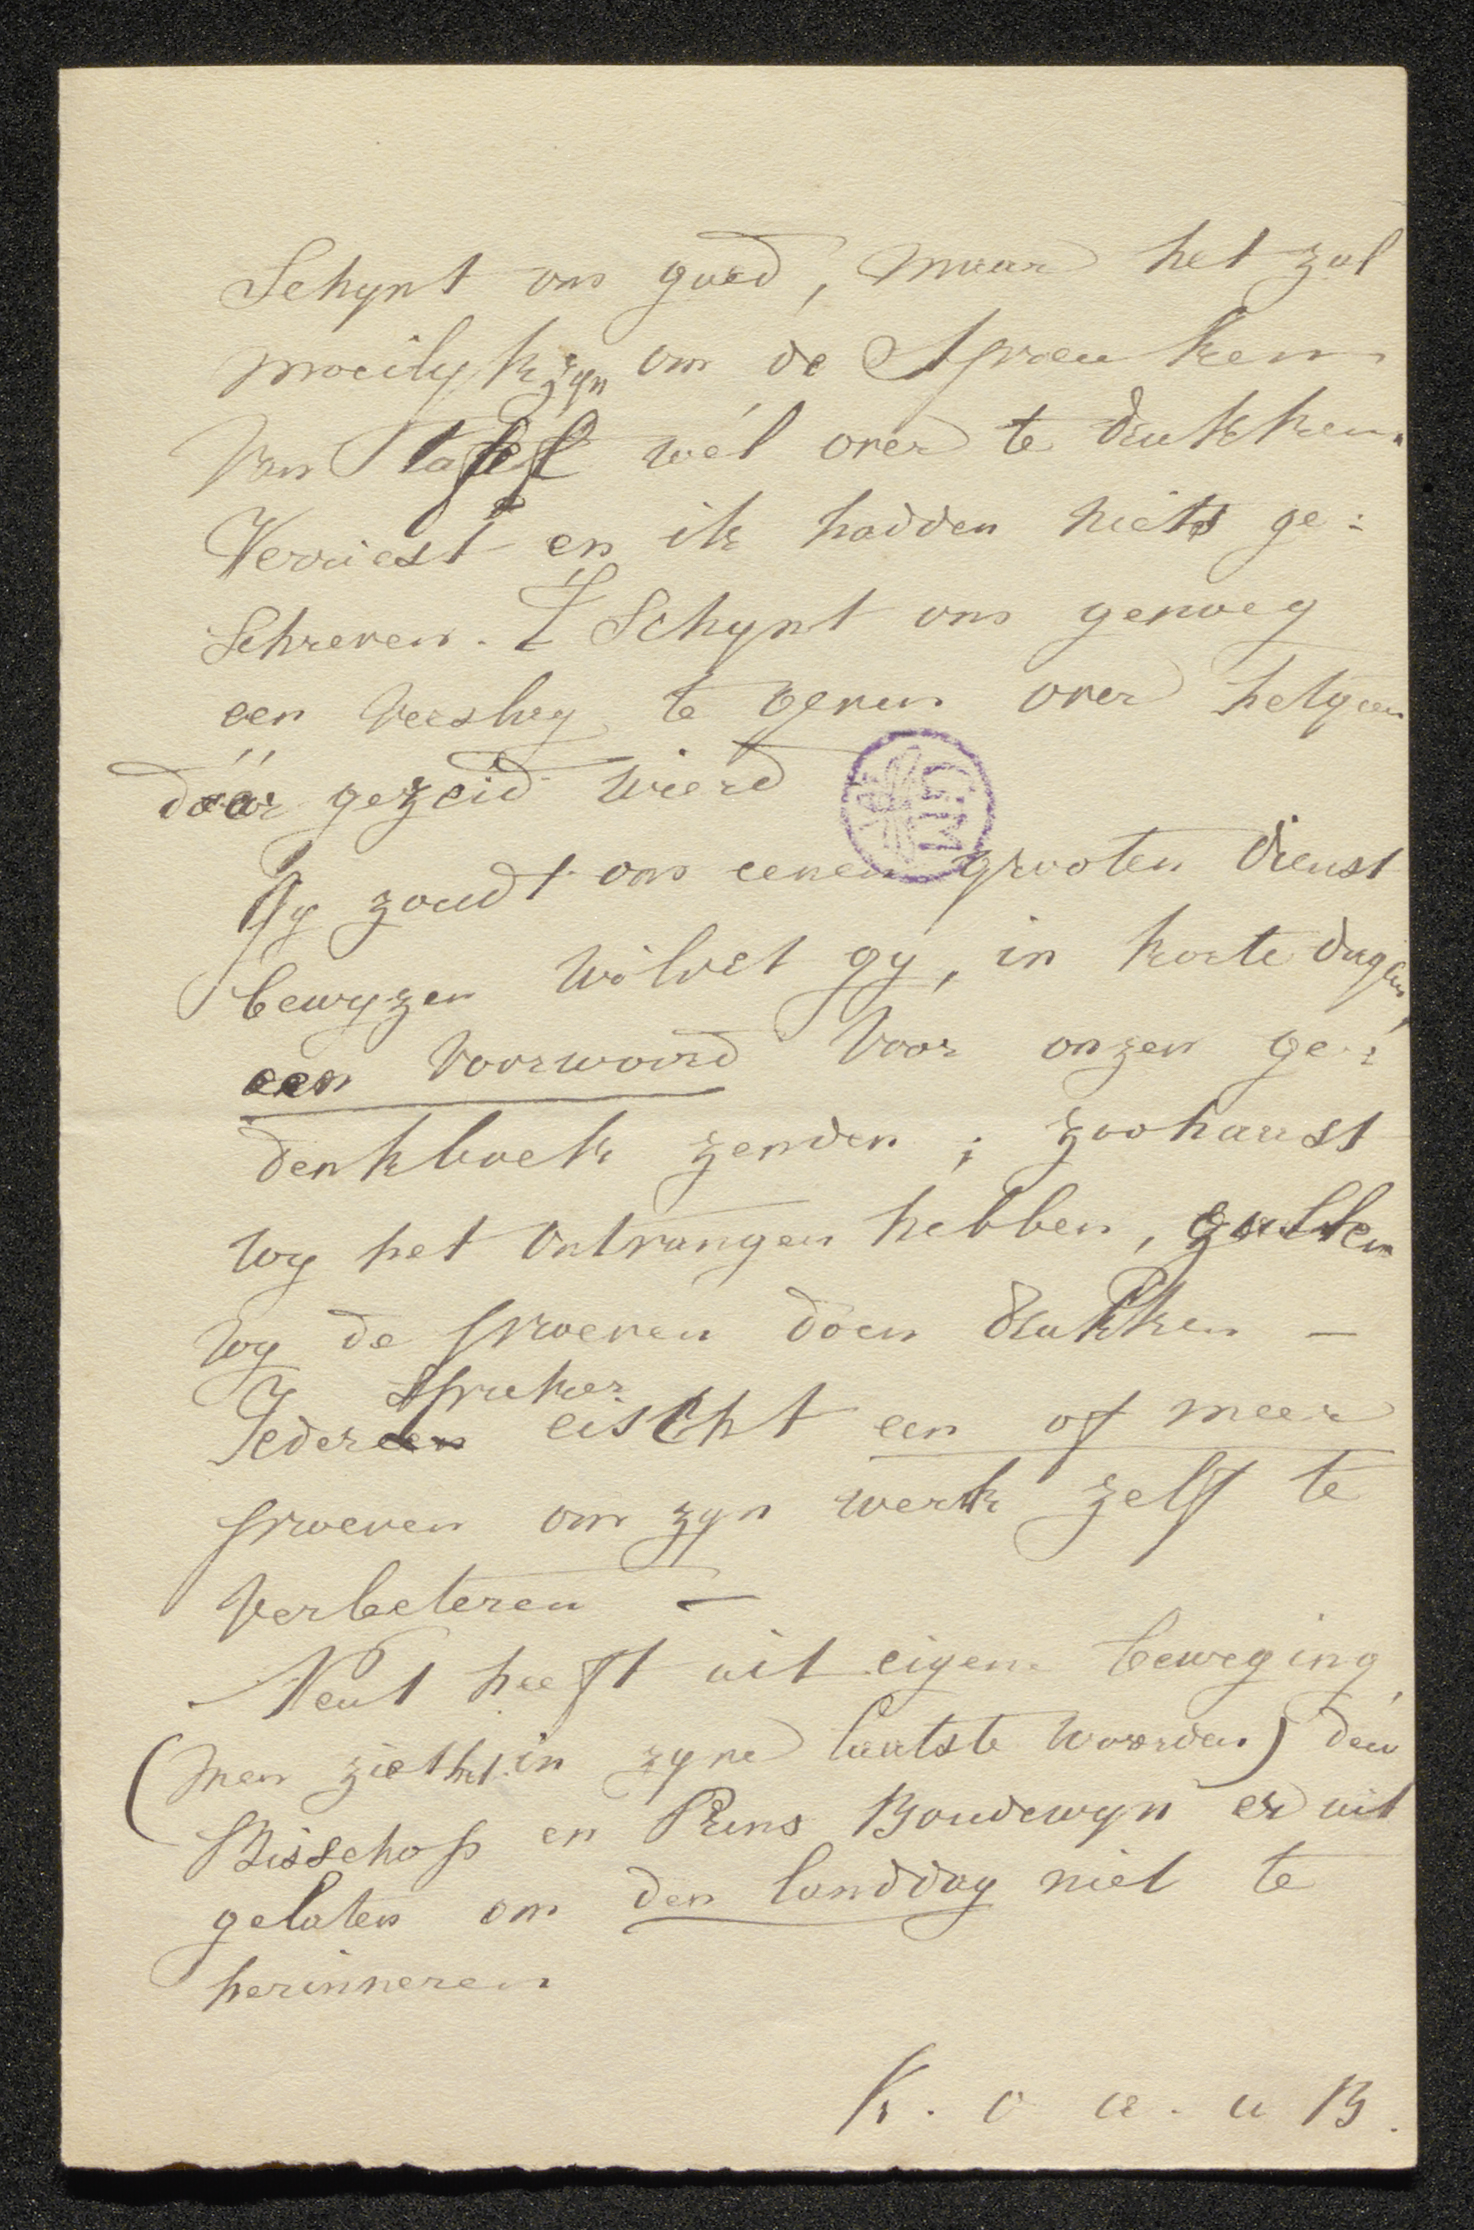 Schynt ons goed, maar het zal
moeilyk zyn om de spreuken
van Tafel wél over te drukken.
Verriest en ik hadden niets ge=
schreven. 't Schynt ons genoeg
een verslag te geven over hetgeen
dáár gezeid wierd
Gy zoudt ons eenen grooten dienst
bewyzen wildet gy, in korte dagen,
een voorwoord voor onzen ge=
denkboek zenden; zoohaast
wy het ontvangen hebben, zullen
wy de proeven doen drukken —
Ieder spreker eischt een of meer
proeven om zyn werk zelf te
verbeteren —
Neut heeft uit eigene beweging
(men ziet het in zyne laatste woorden) den
Bisschop en Prins Boudewyn er uit
gelaten om den landdag niet te
herinneren
K. v a. u B.